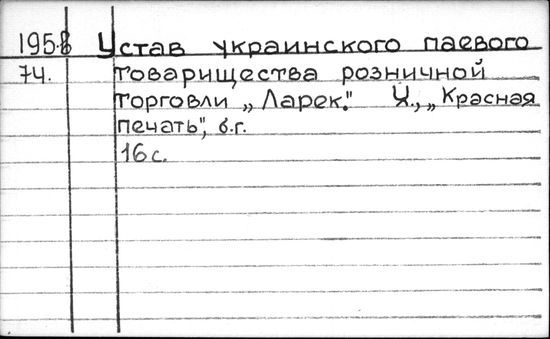 1958 Устав украинского паевого
74. товарищества розничной
торговли „Ларек." Х., „Красная
печать", б.г.
16 с.